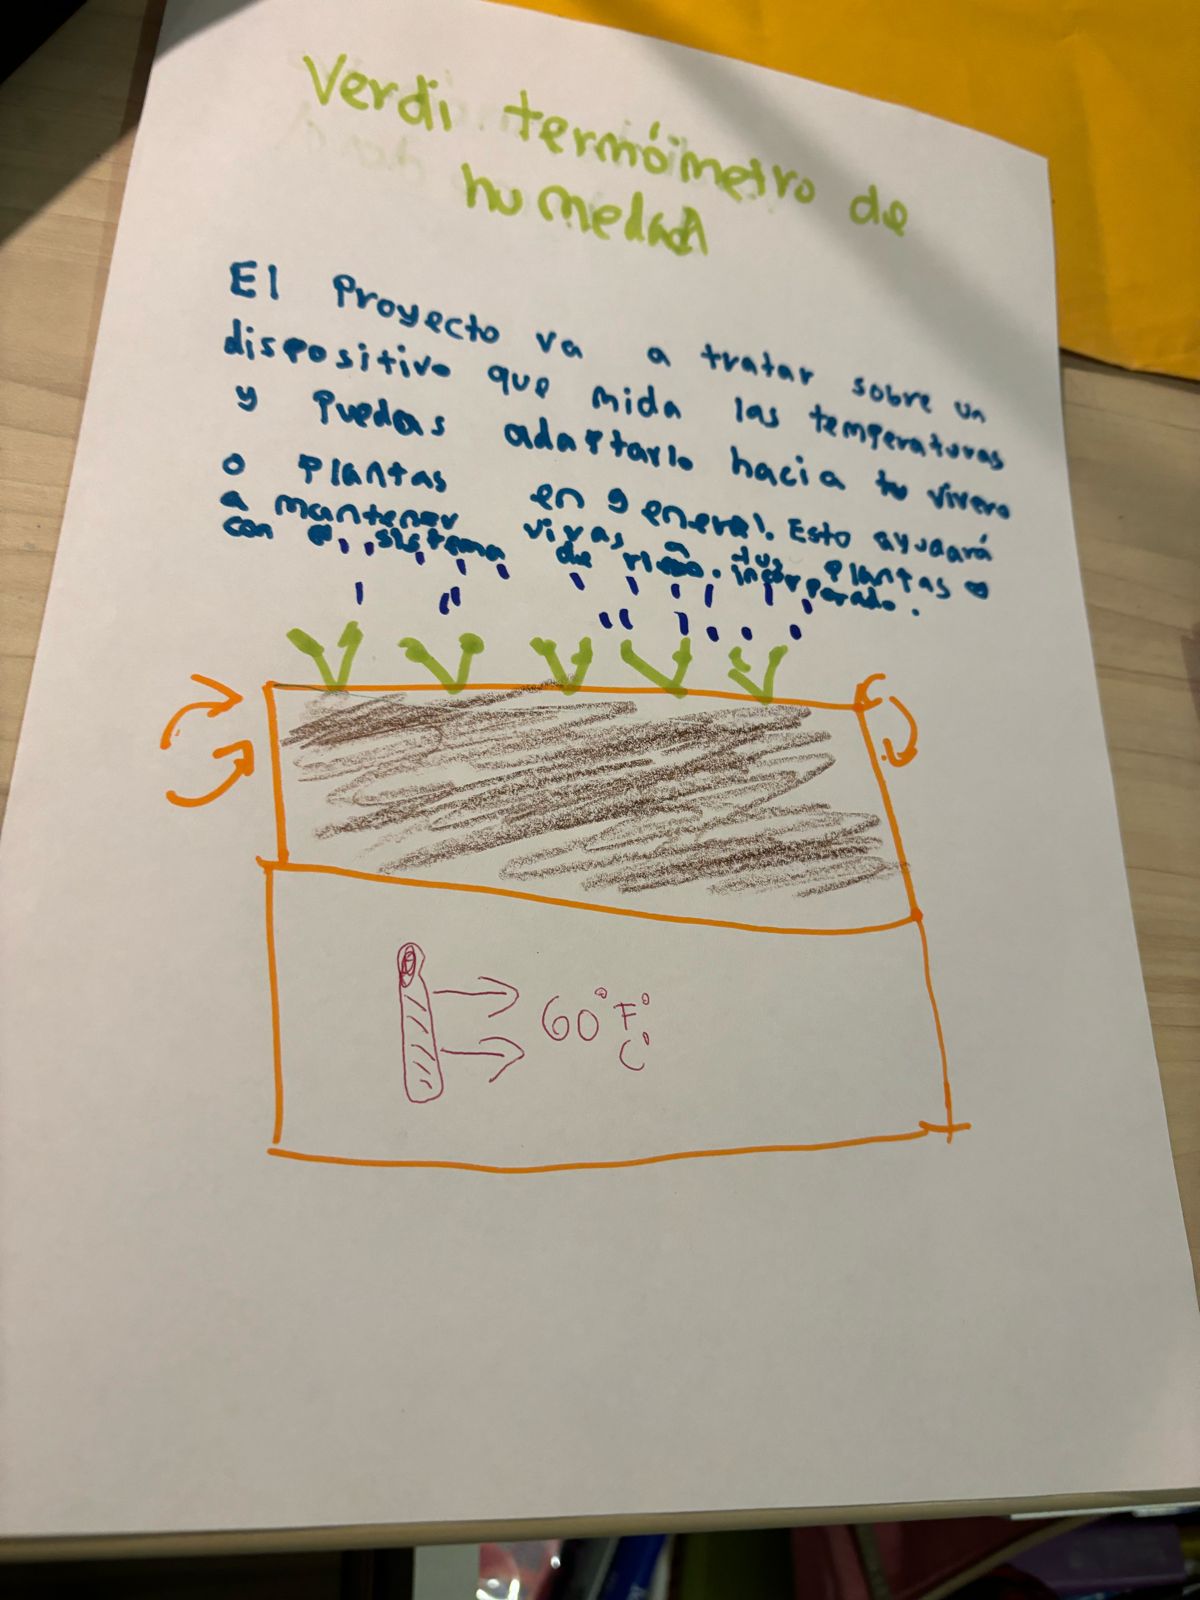 Verdi termóimetro de
humedad
El Proyecto va a tratar sobre un
dispositivo que mida las temperaturas
y puedas adaptarlo hacia tu vivero
o plantas en general. Esto ayudará
a mantener vivas a tus plantas
con sistema de riego. incorporado.
60° F°
C°